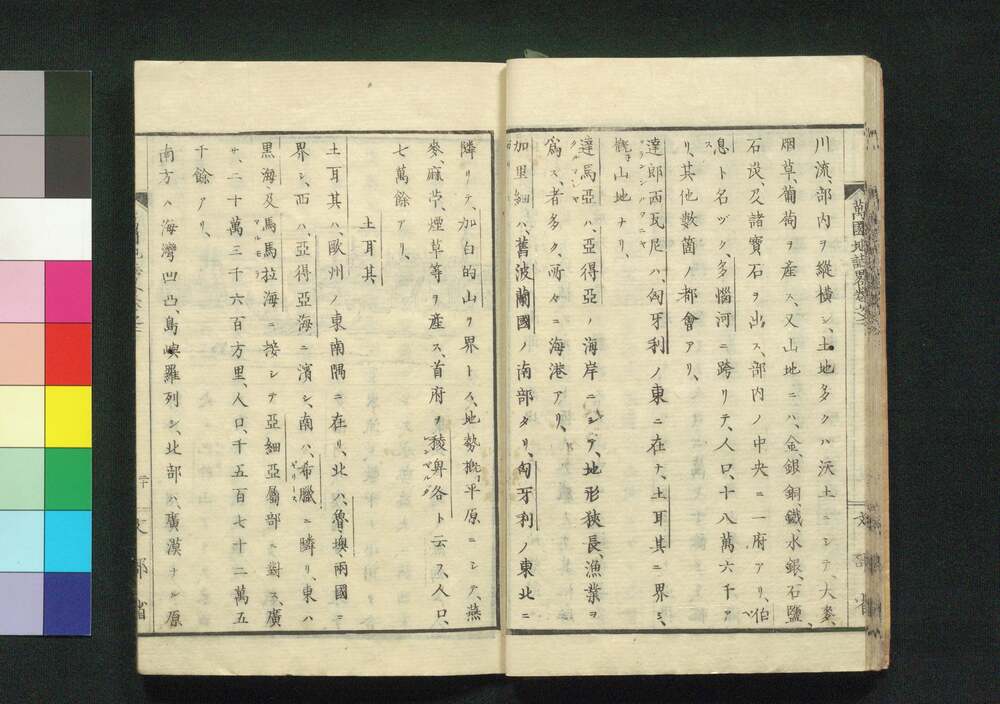 川流、部内ヲ縦横シ、土地多クハ沃土ニシテ、大麥、
烟草、葡萄ヲ産ス、又山地ニハ、金、銀、銅、鐵、水銀、石鹽、
石炭、及諸寶石ヲ出ス、部内ノ中央ニ一府アリ、伯
息ト名ヅク、多惱河ニ跨リテ、人口、十八萬六千ア
リ、其他數箇ノ都會アリ、
達郎西瓦尼ハ、匈牙利ノ東ニ在テ、土耳其ニ界シ、
概子山地ナリ、
達馬亞ハ、亞得亞ノ海岸ニシテ、地形狹長、漁業ヲ
爲ス者多ク、所々ニ海港アリ、
加里細ハ、舊波蘭國ノ南部タリ、匈牙利ノ東北ニ
隣リテ、加白的山ヲ界トス、地勢概子平原ニシテ、燕
麥、麻苧、煙草等ヲ産ス、首府ヲ稜卑各ト云フ、人口、
七萬餘アリ、
土耳其
土耳其ハ、歐州ノ東南隅ニ在リ、北ハ、魯、墺、兩國ニ
界シ、西ハ、亞得亞海ニ濱シ、南ハ、希臘ニ隣リ、東ハ
黒海及馬馬拉海ニ接シテ亞細亞屬部ニ對ス、廣
サ、二十萬三千六百方里、人口、千五百七十二萬五
千餘アリ、
南方ハ海灣凹凸、島嶼羅列シ、北部ハ、廣漠ナル原
萬國地誌畧
文部省